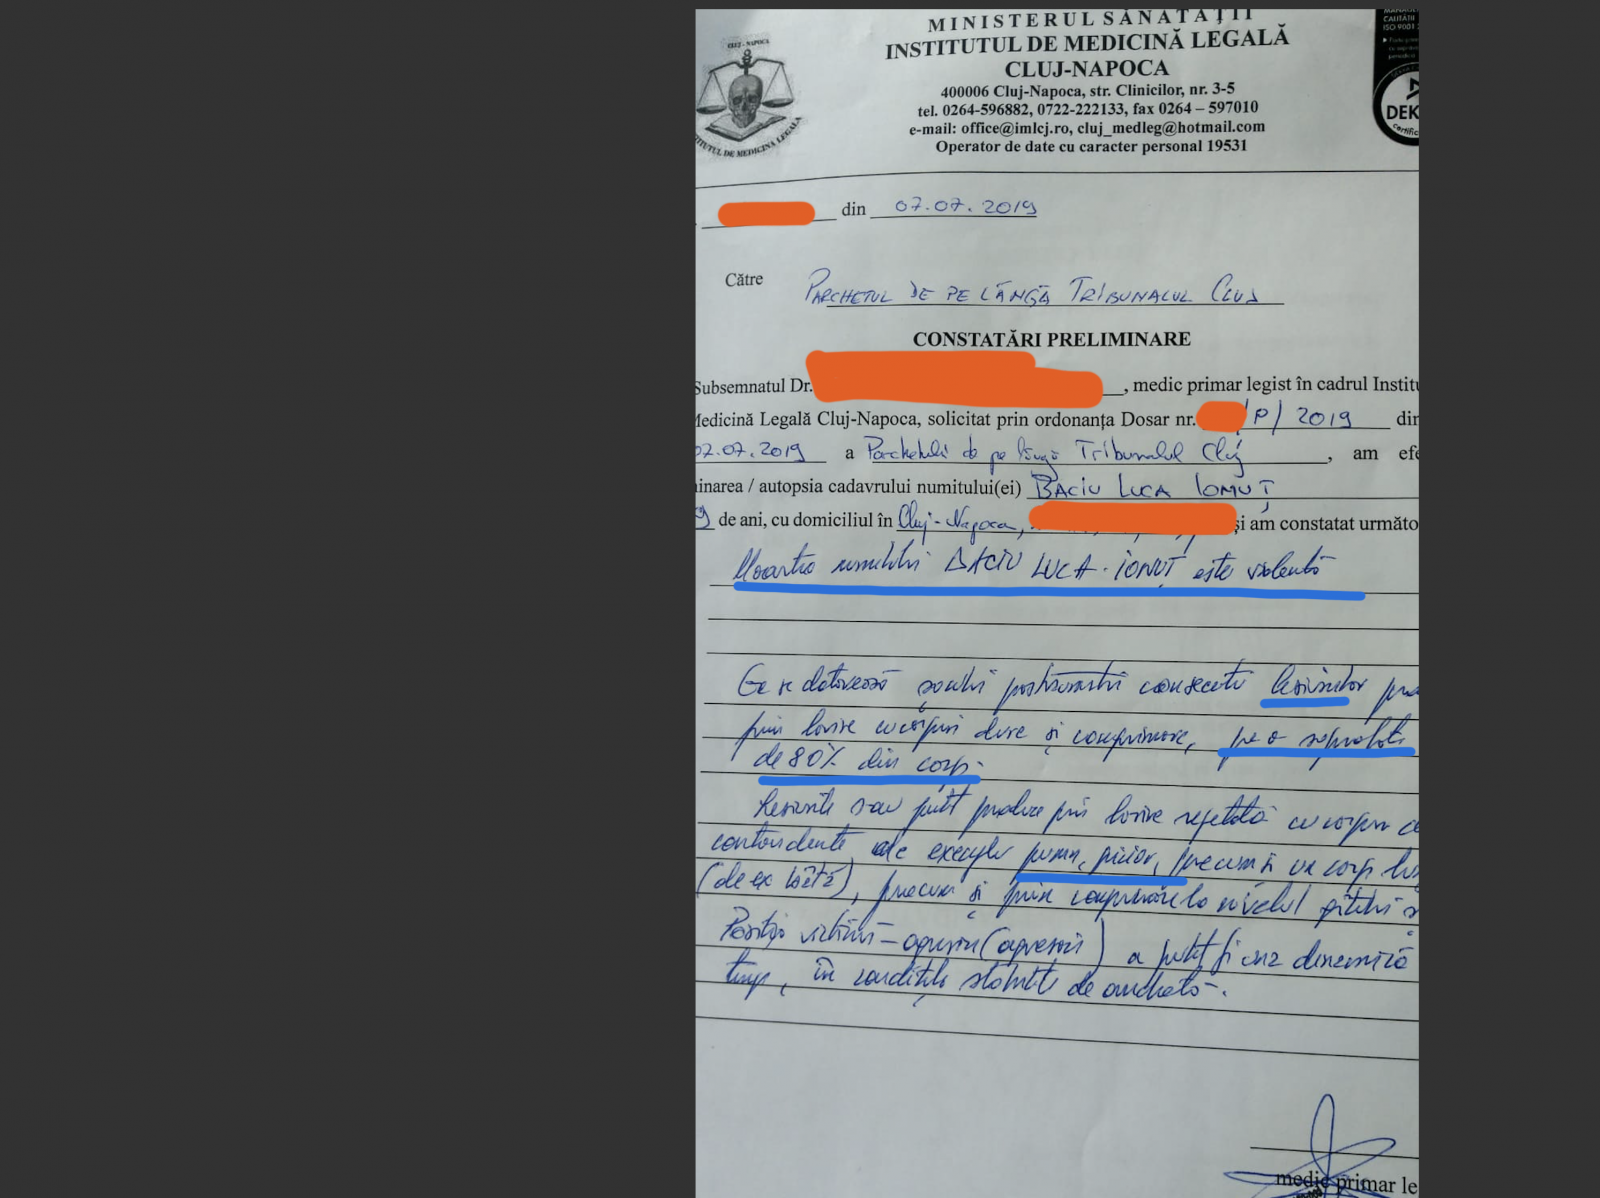 MINISTERUL SĂNĂTĂȚII
INSTITUTUL DE MEDICINĂ LEGALĂ
CLUJ-NAPOCA
400006 Cluj-Napoca, str. Clinicilor, nr. 3-5
tel. 0264-596882, 0722-222133, fax 0264 – 597010
e-mail: office@imlcj.ro, cluj_medleg@hotmail.com
Operator de date cu caracter personal 19531
CLUJ - NAPOCA
TITUTUL DE MEDICINA LEGALA
CALITĂȚII
ISO 9001
DEK
certific
din 07.07.2019
Către PARCHETUL DE PE LÂNGĂ TRIBUNALUL CLUJ
CONSTATĂRI PRELIMINARE
Subsemnatul Dr. , medic primar legist în cadrul Institu
Medicină Legală Cluj-Napoca, solicitat prin ordonanța Dosar nr. /P/ 2019 din
07.07.2019 a Parchetului de pe lângă Tribunalul Cluj , am efe
inarea / autopsia cadavrului numitului(ei) BACIU LUCA IONUȚ
9 de ani, cu domiciliul în Cluj-Napoca, și am constatat următo
Moartea numitului BACIU LUCA-IONUȚ este violentă
Ea se datorează șocului posttraumatic consecutiv leziunilor
prin lovire cu corpuri dure și comprimare, pe o suprafață
de 80% din corp.
Leziunile s-au putut produce prin lovire repetată cu corpuri
contondente de exemplu pumn, picior, precum și un corp
(de ex bâtă), precum și prin comprimare la nivelul gâtului
Poziția victimă-agresor (agresori) a putut fi una dinamică
timp, în condițiile stabilite de anchetă.
medic primar le